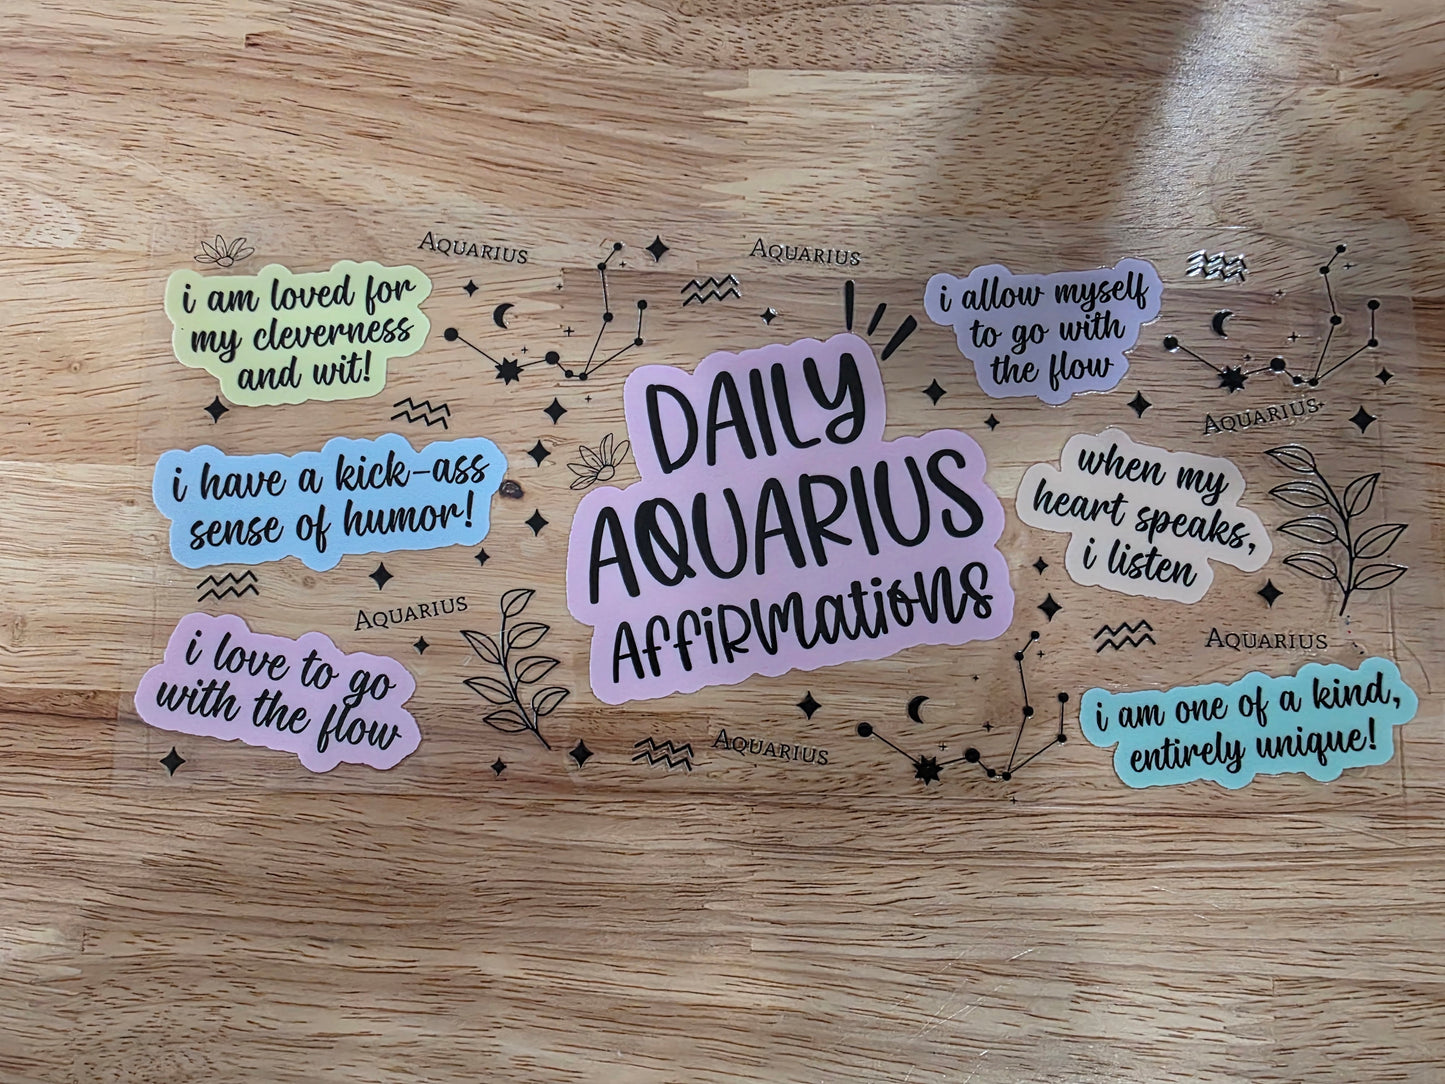 Aquarius
Aquarius
i am loved for
my cleverness
and wit!
i allow myself
to go with
the flow
DAILY
AQUARIUS
AffiRMations
Aquarius
i have a kick-ass
sense of humor!
when my
heart speaks,
i listen
Aquarius
i love to go
with the flow
Aquarius
Aquarius
i am one of a kind,
entirely unique!